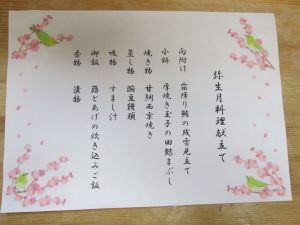 弥生月料理献立て
向附け 霜降り鯛の残雪見立て
小鉢 厚焼き玉子の田麩まぶし
焼き物 甘鯛西京焼き
蒸し物 豌豆饅頭
吸物 すまし汁
御飯 蕗とあげの炊き込みご飯
香物 漬物